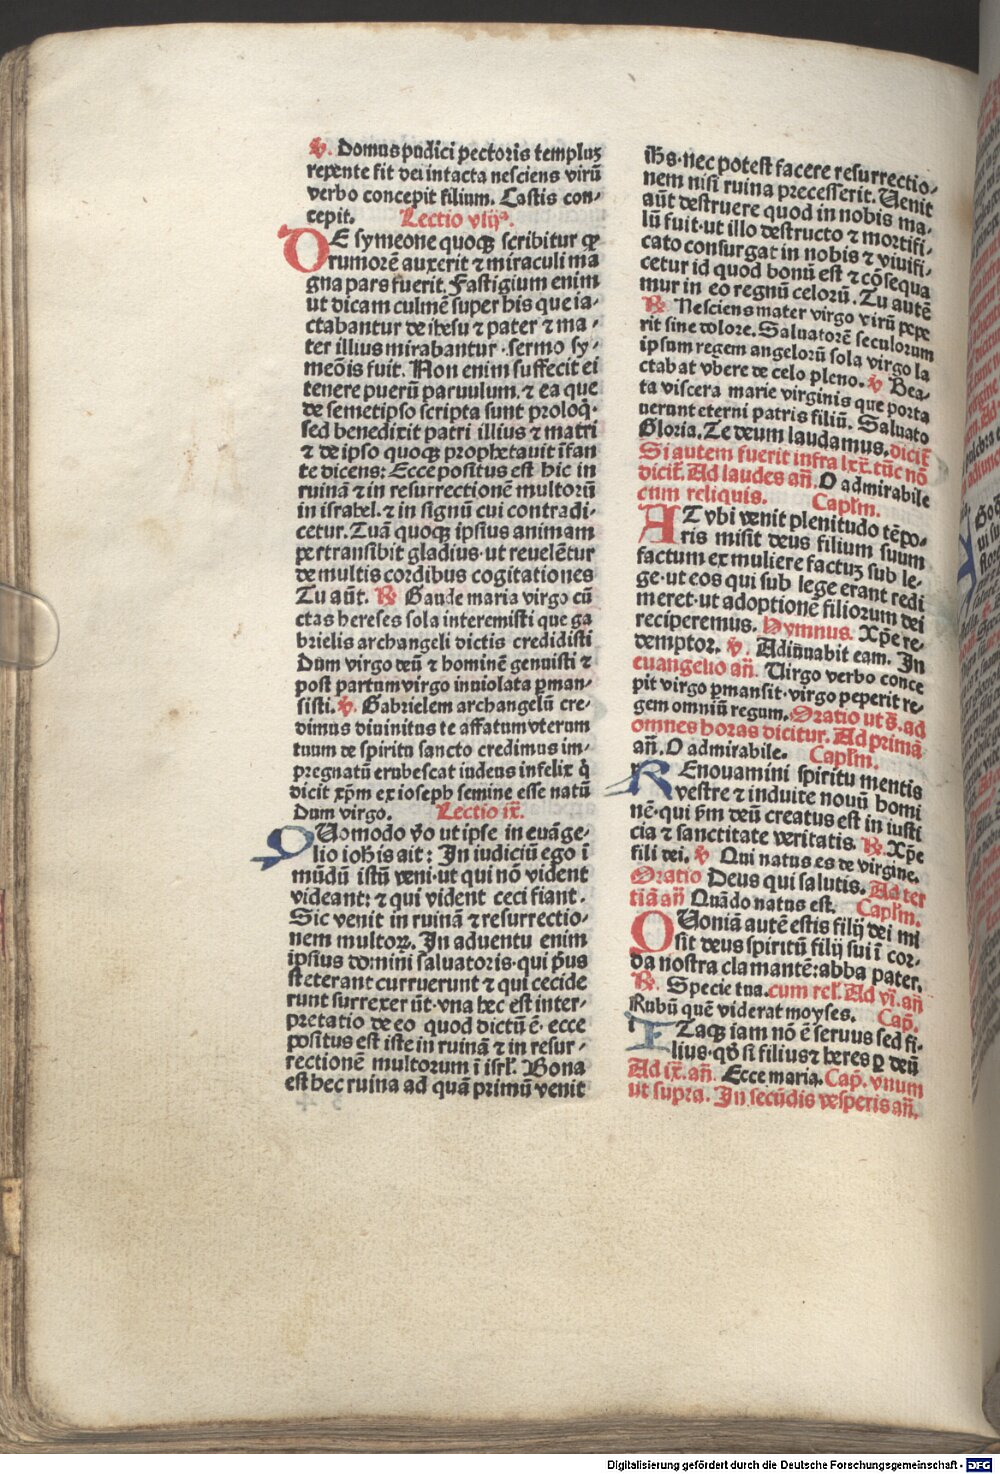 ℣. Domus pudici pectoris templuꝫ
repente fit dei intacta nesciens virū
verbo concepit filium. Castis con-
cepit. Lectio viijª.
DE symeone quoqꝫ scribitur qꝛ
rumorē auxerit ⁊ miraculi ma
gna pars fuerit. Fastigium enim
ut dicam culmē super his que ia-
ctabantur de ihesu ⁊ pater ⁊ ma-
ter illius mirabantur. sermo sy-
meōis fuit. Non enim suffecit ei
tenere puerū paruulum. ⁊ ea que
de semetipso scripta sunt proloq̇.
sed benedixit patri illius ⁊ matri
⁊ de ipso quoqꝫ prophetauit īfan
te dicens: Ecce positus est hic in
ruinā ⁊ in resurrectionē multorū
in israhel. ⁊ in signū cui contradi-
cetur. Tuā quoqꝫ ipsius animam
pertransibit gladius. ut reuelētur
de multis cordibus cogitationes
Tu aūt. ℟ Gaude maria virgo cū
ctas hereses sola interemisti que ga
brielis archangeli dictis credidisti
Dum virgo deū ⁊ hominē genuisti ⁊
post partum virgo inuiolata ꝑman-
sisti. ℣. Gabrielem archangelū cre-
dimus diuinitus te affatum vterum
tuum de spiritu sancto credimus im-
pregnatū erubescat iudeus infelix q̇
dicit xp̄m ex ioseph semine esse natū
Dum virgo. Lectio ix.
QUomodo v̄o ut ipse in euāge-
lio ioh̄is ait: In iudiciū ego ī
mūdū istū veni. ut qui nō vident
videant: ⁊ qui vident ceci fiant.
Sic venit in ruinā ⁊ resurrectio-
nem multoꝝ. In aduentu enim
ipsius domini saluatoris. qui p̄us
steterant curruerunt ⁊ qui cecide
runt surrexerūt. vna hec est inter-
pretatio de eo quod dictū ē. ecce
positus est iste in ruinā ⁊ in resur-
rectionē multorum ī isrl̄. Bona
est hec ruina ad quā primū venit
ih̄s. nec potest facere resurrectio-
nem nisi ruina precesserit. Uenit
aūt destruere quod in nobis ma-
lū fuit. ut illo destructo ⁊ mortifi-
cato consurgat in nobis ⁊ viuifi-
cetur id quod bonū est ⁊ cōsequa
mur in eo regnū celorū. Tu autē
℟ Nesciens mater virgo virū pepe
rit sine dolore. Saluatorē seculorum
ipsum regem angelorū sola virgo la
ctabat vbere de celo pleno. ℣ Bea-
ta viscera marie virginis que porta
uerunt eterni patris filiū. Saluato
Gloria. Te deum laudamus. dicit̄
Si autem fuerit infra lxx. tūc nō
dicit̄. Ad laudes an̄. O admirabile
cum reliquis. Capl̄m.
AT vbi venit plenitudo tēpo-
ris misit deus filium suum
factum ex muliere factuꝫ sub le-
ge. ut eos qui sub lege erant redi
meret. ut adoptionē filiorum dei
reciperemus. Hymnus. Xp̄e re-
demptor. ℣. Adiuuabit eam. In
euangelio an̄. Uirgo verbo conce
pit virgo ꝑmansit. virgo peperit re-
gem omniū regum. Oratio ut s̄. ad
omnes horas dicitur. Ad primā
an̄. O admirabile. Capl̄m.
REnouamini spiritu mentis
vestre ⁊ induite nouū homi
nē. qui s̄m deū creatus est in iusti
cia ⁊ sanctitate veritatis. ℟. Xp̄e
fili dei. ℣ Qui natus es de virgine.
Oratio Deus qui salutis. Ad ter
tiā an̄ Quādo natus est. Capl̄m.
QUoniā autē estis filij dei mi
sit deus spiritū filij sui ī cor-
da nostra clamantē: abba pater.
℟. Specie tua. cum rel̄. Ad vi. an̄
Rubū quē viderat moyses. Cap̄.
ITaqꝫ iam nō ē seruus sed fi-
lius. qd̄ si filius ⁊ heres ꝑ deū
Ad ix. an̄. Ecce maria. Cap̄. vnum
ut supra. In secūdis vesperis an̄.
Digitalisierung gefördert durch die Deutsche Forschungsgemeinschaft - DFG